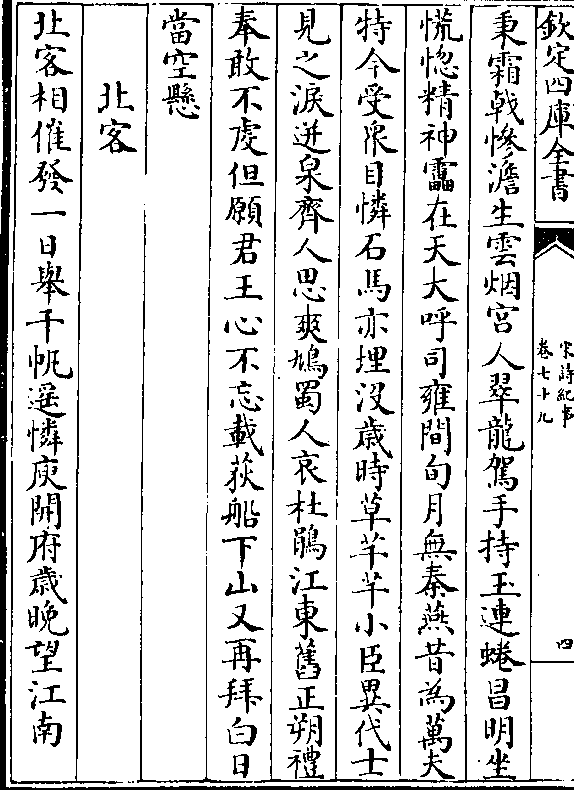 欽定四庫全書
宋詩紀事
卷七十九
四
秉霜戟慘澹生雲烟宫人翠龍駕手持玉連蜷昌明坐
慌惚精神靁在天大呼司雍間旬月無秦燕昔為萬夫
特今受衆目憐石馬亦埋没歲時草芊芊小臣異代士
見之淚迸泉齊人思爽鳩蜀人哀杜鵑江東舊正朔禮
奉敢不虔但願君王心不忘載荻船下山又再拜白日
當空懸
北客
北客相催發一日舉千帆遥憐庾開府歲晚望江南